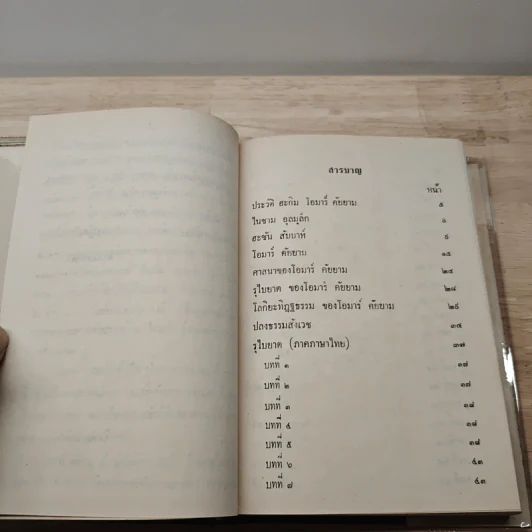 สารบาญ
หน้า
ประวัติ ฮะกิม โอมาร์ คัยยาม ๕
ไนซาม อุลมุลก์
ฮะซัน สับบาห์ ๙
โอมาร์ คัยยาม ๑๕
ศาสนาของโอมาร์ คัยยาม ๒๔
รุไบยาต ของโอมาร์ คัยยาม ๒๘
โลกิยะทิฏฐธรรม ของโอมาร์ คัยยาม ๒๙
ปลงธรรมสังเวช ๓๕
รุไบยาต (ภาคภาษาไทย) ๓๗
บทที่ ๑ ๓๗
บทที่ ๒ ๓๗
บทที่ ๓ ๓๘
บทที่ ๔ ๓๘
บทที่ ๕ ๓๘
บทที่ ๖ ๔๓
บทที่ ๗ ๔๓